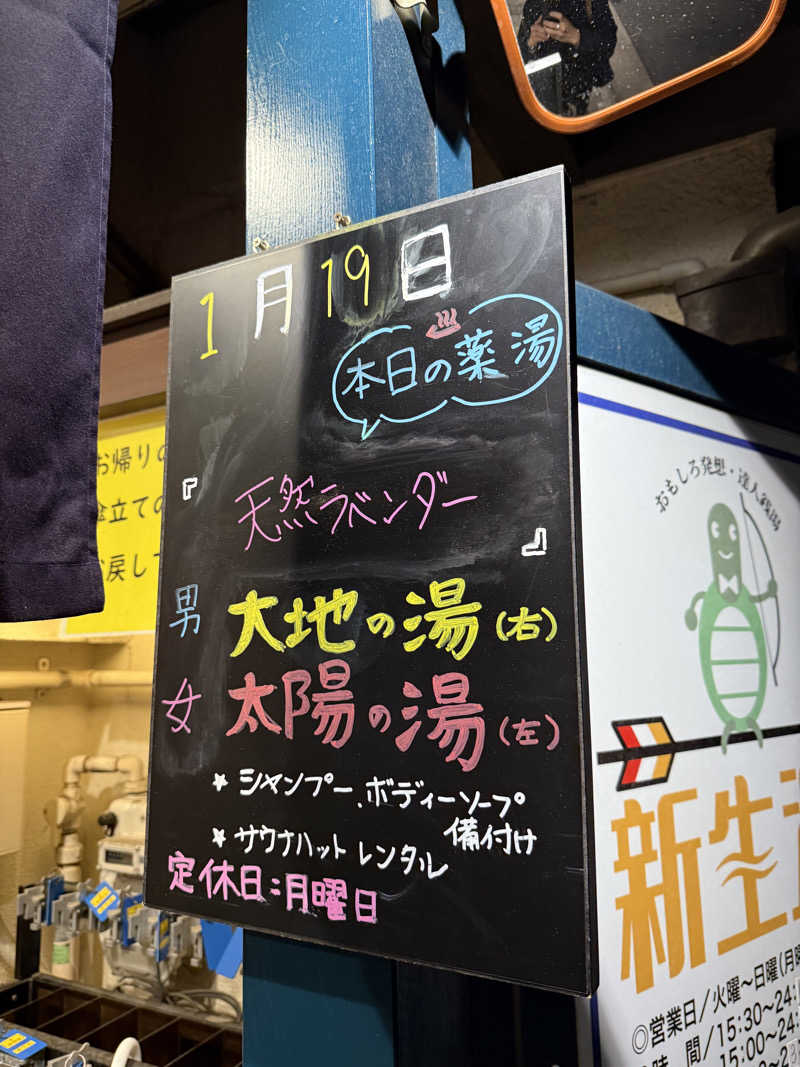 1月19日
本日の薬湯
『天然ラベンダー』
男 大地の湯(右)
女 太陽の湯(左)
★シャンプー、ボディーソープ
備付け
★サウナハットレンタル
定休日:月曜日
お帰り
傘立ての
戻し
おもしろ発想・達人銭湯
新生
◎営業日/火曜~日曜(月曜
時 間/15:30~24:
15:00~24: